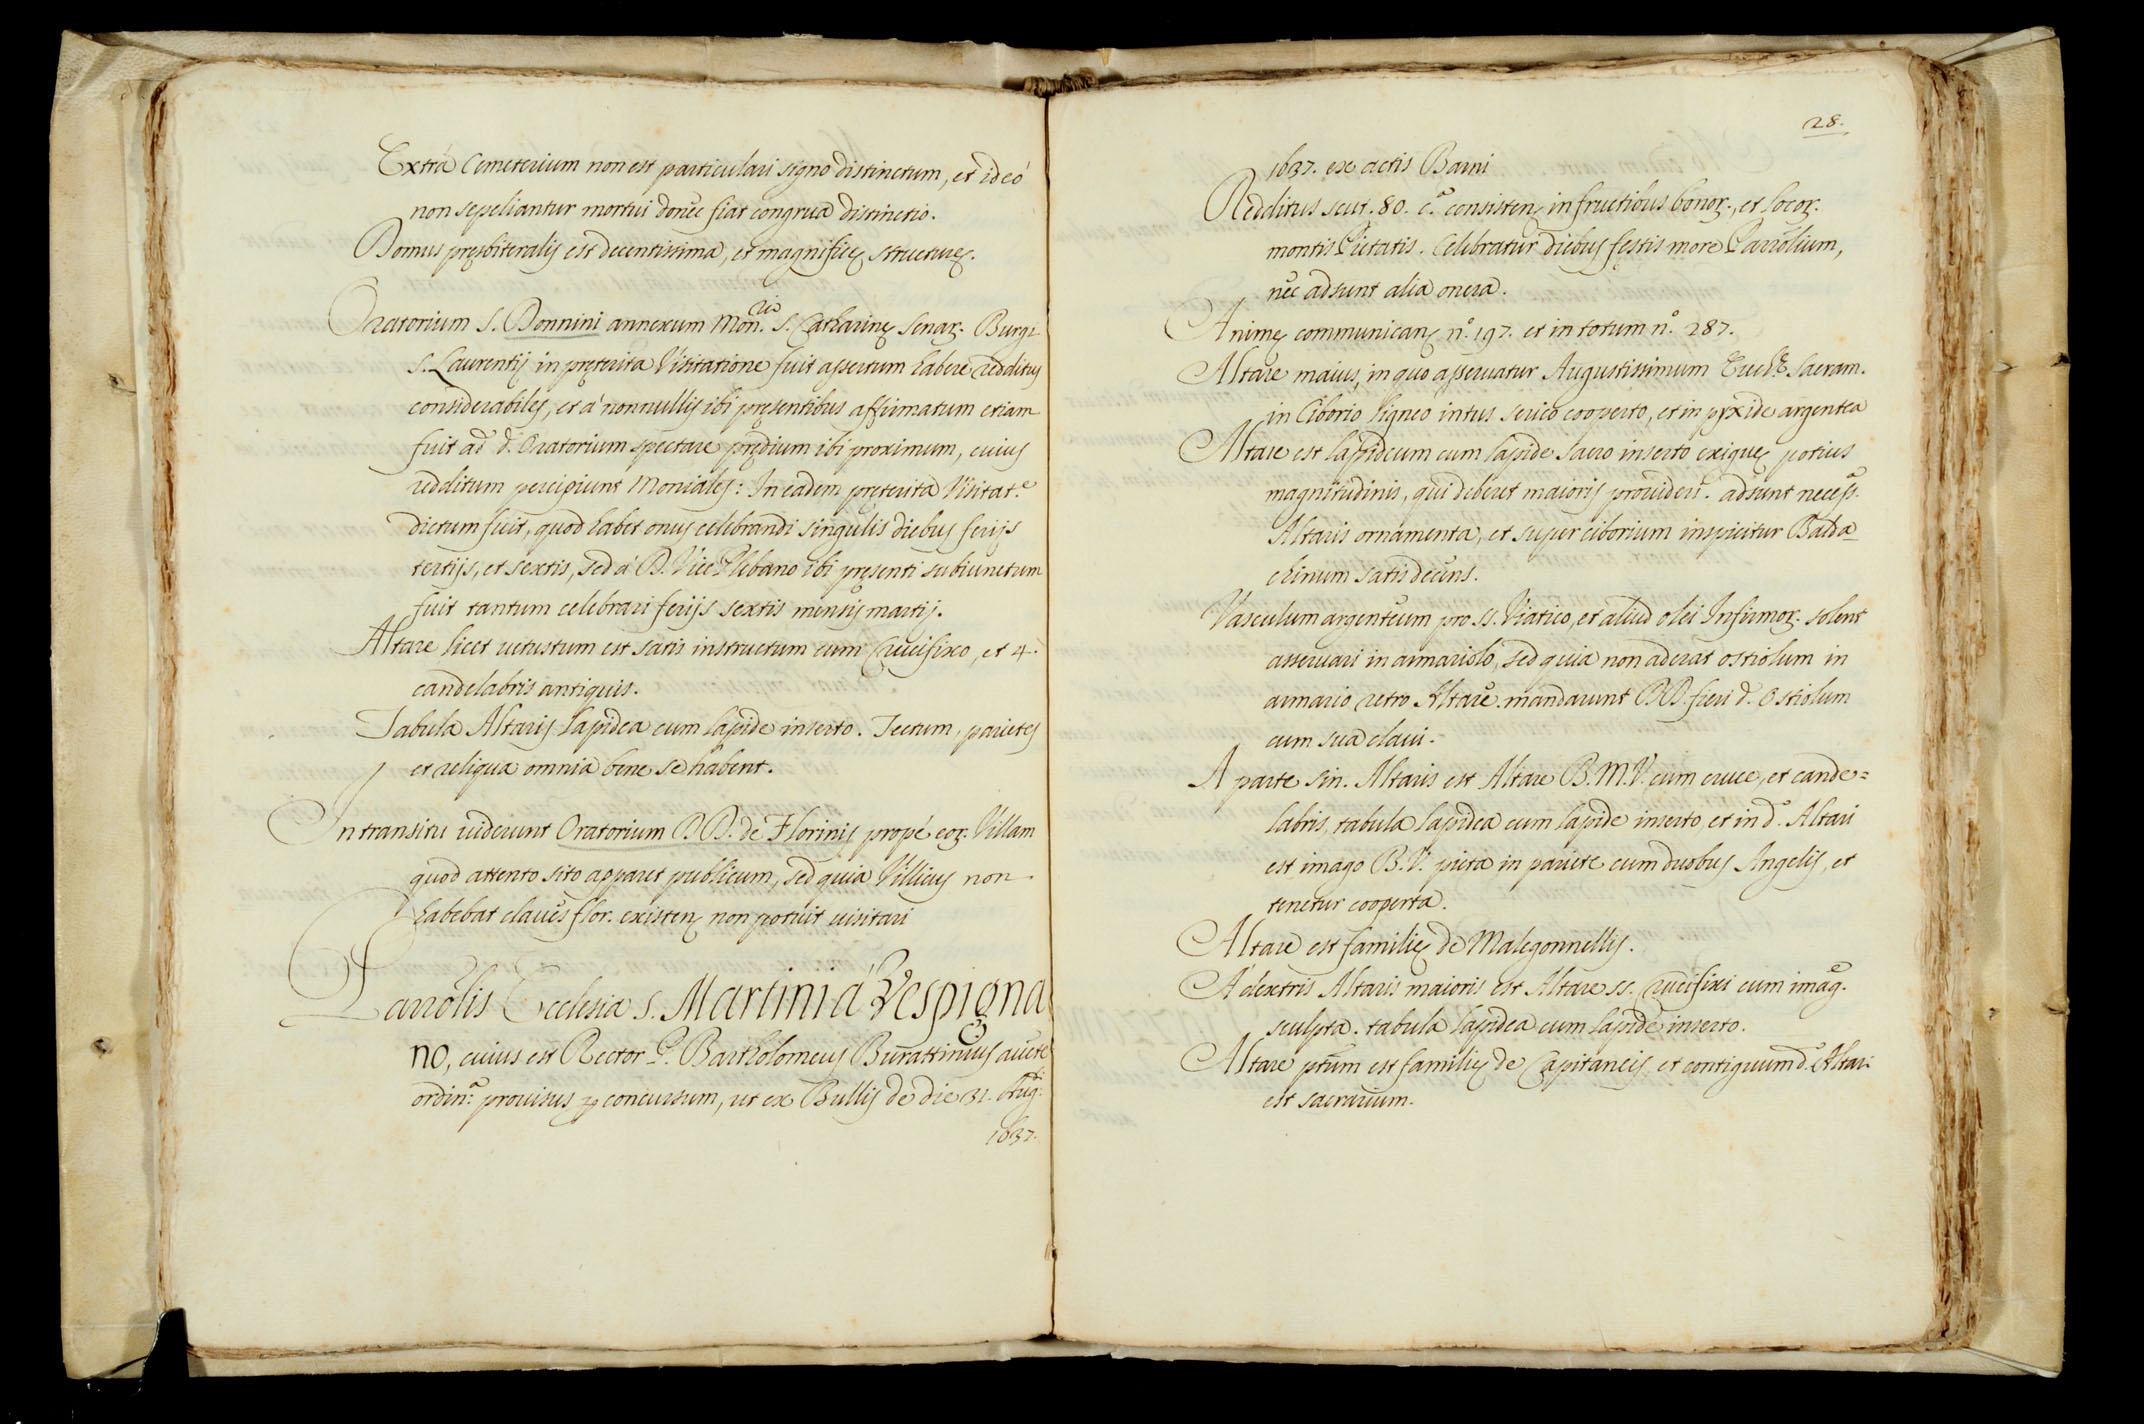 Extrà Cemeterium non est particulari signo distinctum, et ideò
non sepeliantur mortui donec fiat congrua distinctio.
Domus pręsbiteralis est decentissima, et magnificę structurę.
Oratorium S. Donnini annexum Mon.rio S. Catharinę Senar: Burgi
S. Laurentij in pręterita Visitatione fuit assertum habere redditus
considerabiles, et à nonnullis ibi pręsentibus affirmatum etiam
fuit ad d. Oratorium spectare prędium ibi proximum, cuius
redditum percipiunt Moniales: In eadem pręterita Visitat.e
dictum fuit, quod habet onus celebrandi singulis diebus ferijs
tertijs, et sextis, sed à D. Vice Plebano ibi pręsenti subiunctum
fuit tantum celebrari ferijs sextis mensis martij.
Altare licet uetustum est satis instructum cum Crucifixo, et 4.
candelabris antiquis.
Tabula Altaris lapidea cum lapide inserto. Tectum, parietes
et reliqua omnia bene se habent.
In transitu uiderunt Oratorium D.D. de Florinis propè eor: Villam
quod attento sito apparet publicum, sed quia Villicus non
habebat claues flor. existen. non potuit uisitari
Parrolis Ecclesia S. Martini à Vespigna
no, cuius est Rector P. Bartholomeus Burattinius aucte
ordin.a prouisus per concursum, ut ex Bullis de die 31. Aug:ti
1637.
28.
1637. ex actis Barni
Redditus scut. 80. c.a consisten. in fructibus bonor:, et locor:
montis Pietatis. Celebratur diebus festis more Parrolium,
nec adsunt alia onera.
Animę communican. n.o 197. et in totum n.o 287.
Altare maius, in quo asseruatur Augustissimum Euch.e Sacram.
in Ciborio ligneo intus serico cooperto, et in pyxide argentea
Altare est lapideum cum lapide sacro inserto exiguę potius
magnitudinis, qui deberet maioris prouideri. adsunt necess.a
Altaris ornamenta, et super ciborium inspicitur Balda
chinum satis decens.
Vasculum argenteum pro SS. Viatico, et aliud olei Infirmor: solent
asseruari in armariolo, sed quia non aderat ostiolum in
armario retro Altare mandarunt D.D. fieri d. Ostiolum
cum sua claui.
A parte sin. Altaris est Altare B.M.V. cum cruce, et cande=
labris, tabula lapidea cum lapide inserto, et in d.o Altari
est imago B.V. picta in pariete cum duobus Angelis, et
tenetur cooperta.
Altare est familię de Malegonnellis.
A dextris Altaris maioris est Altare SS. Crucifixi cum imag.e
sculpta. tabula lapidea cum lapide inserto.
Altare ptum est familię de Capitaneis, et contiguum d.o Altari
est sacrarium.